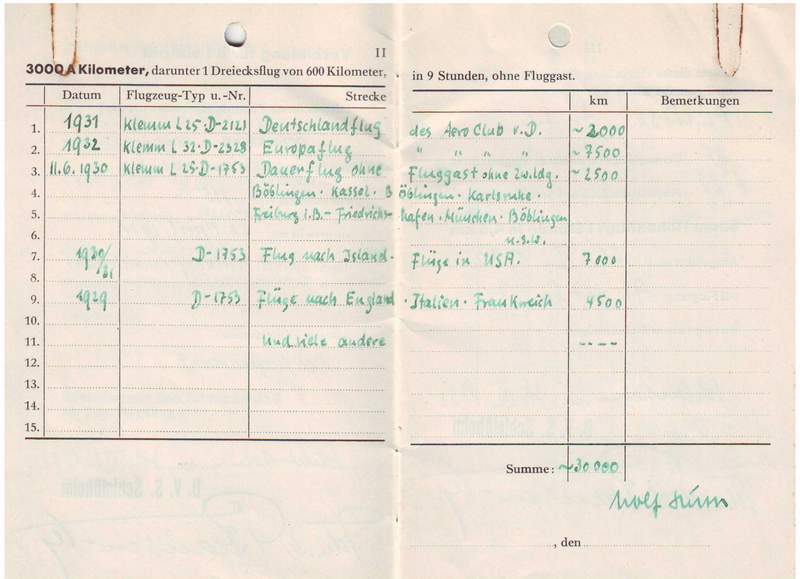 II
3000 A Kilometer, darunter 1 Dreiecksflug von 600 Kilometer, in 9 Stunden, ohne Fluggast.
Datum Flugzeug-Typ u.-Nr. Strecke km Bemerkungen
1. 1931 Klemm L 25-D-2121 Deutschlandflug des Aero Club v. D. ~ 2000
2. 1932 Klemm L 32-D-2328 Europaflug " " " " ~ 7500
3. 11.6.1930 Klemm L 25-D-1753 Dauerflug ohne Fluggast ohne Zw.ldg. ~ 2500
4. Böblingen - Kassel - Böblingen - Karlsruhe -
5. Freiburg i.B. - Friedrichshafen - München - Böblingen
6. u.s.w.
7. 1930/31 D-1753 Flug nach Island - Flüge in USA. 7000
8.
9. 1929 D-1753 Flüge nach England - Italien - Frankreich 4500
10.
11. und viele andere ----
12.
13.
14.
15.
Summe: ~30000
Wolf Hirth
, den